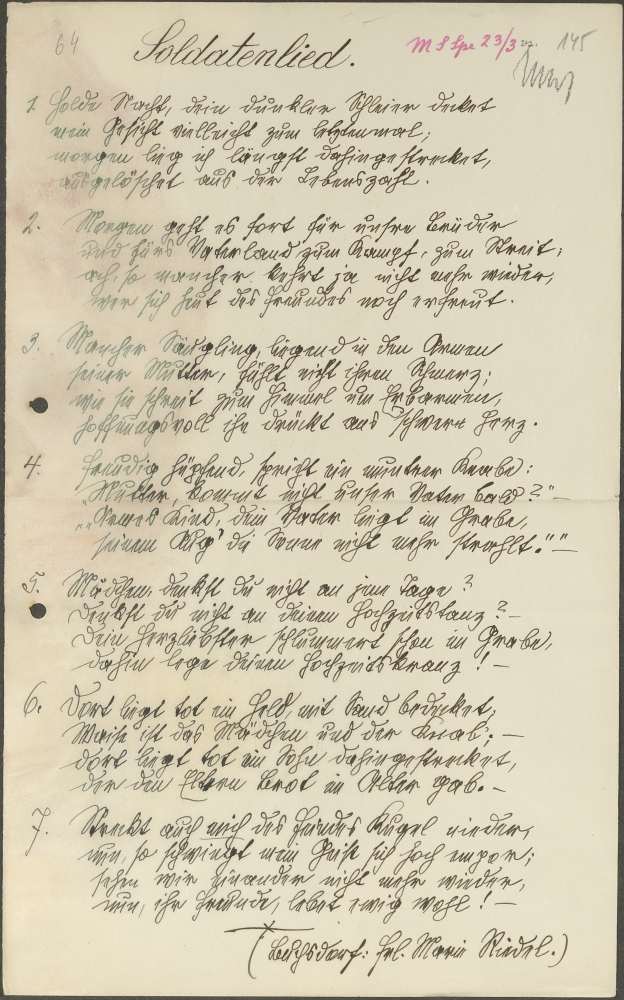 64
Soldatenlied.
145
1. Holde Nacht, dein dunkler Schleier decket
mein Gesicht vielleicht zum letztenmal;
morgen lieg ich längst dahingestrecket,
ausgelöschet aus der Lebenszahl.
2. Morgen geht es fort für unsre Brüder
und fürs Vaterland zum Kampf, zum Streit;
ach, so mancher kehrt ja nicht mehr wieder,
wer sich heut des Freundes noch erfreut.
3. Mancher Säugling, liegend in den Armen
seiner Mutter, fühlt nicht ihren Schmerz;
wie sie schreit zum Himmel um Erbarmen,
hoffnungsvoll ihn drückt ans schwere Herz.
4. Freudig hüpfend, spricht ein muntrer Knabe:
"Mutter, kommt nicht unser Vater bald?" –
"Armes Kind, dein Vater liegt im Grabe,
seinem Aug' die Sonne nicht mehr strahlt." –
5. Mädchen, denkst du nicht an jene Tage?
Denkst du nicht an deinen Hochzeitstanz? –
Dein Herzliebster schlummert schon im Grabe,
dahin lege deinen Hochzeitskranz! –
6. Dort liegt tot ein Held, mit Sand bedecket;
Waise ist das Mädchen und der Knab; –
dort liegt tot ein Sohn dahingestrecket,
der den Eltern Brot im Alter gab. –
7. Streckt auch mich des Feindes Kugel nieder,
nun, so schwingt mein Geist sich hoch empor;
sehen wir einander nicht mehr wieder,
nun, ihr Freunde, lebet ewig wohl! –
(Buchsdorf: Frl. Marie Riedel.)